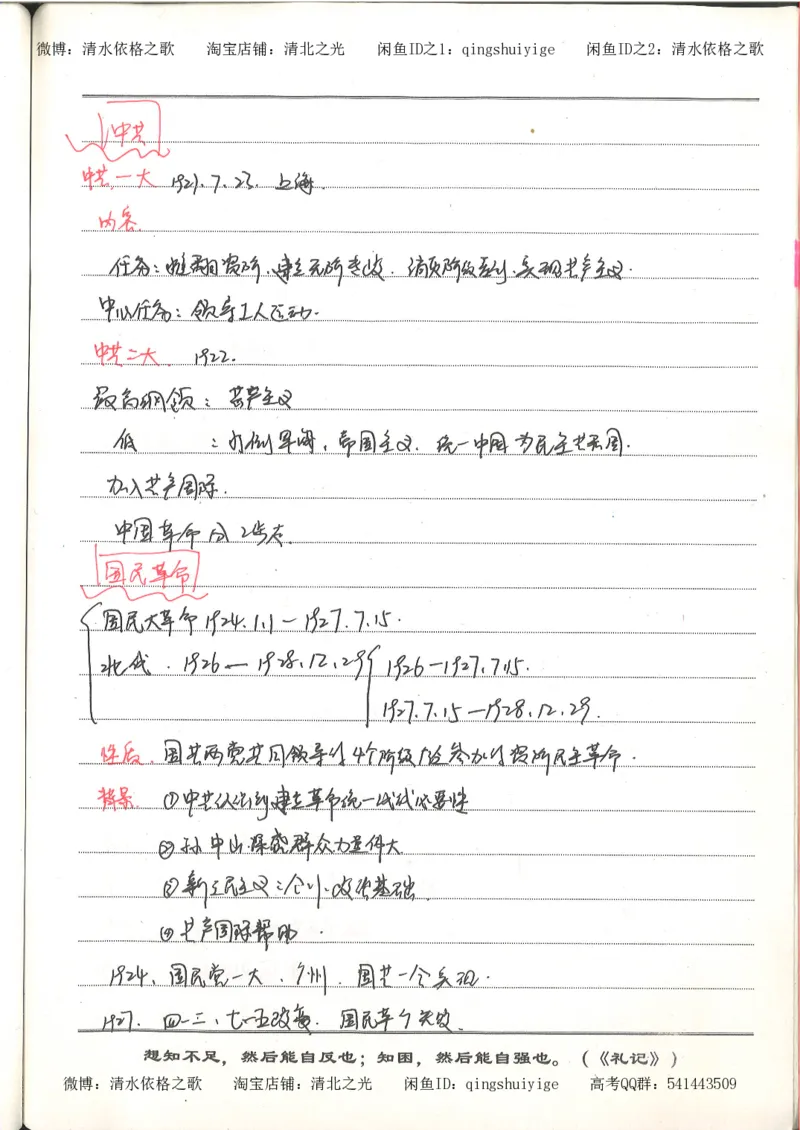 微博：清水依格之歌 淘宝店铺：清北之光 闲鱼ID之1：qingshuiyige 闲鱼ID之2：清水依格之歌
中共
中共一大 1921.7.23. 上海.
内容.
任务：推翻资阶.建立无阶专政.消灭阶级差别.实现共产主义.
中心任务：领导工人运动.
中共二大. 1922.
最高纲领：共产主义
低 ：打倒军阀,帝国主义.统一中国为民主共和国.
加入共产国际.
中国革命分2步走.
国民革命
国民大革命 1924.1.1—1927.7.15.
北伐. 1926—1928.12.29 1926-1927.7.15.
1927.7.15—1928.12.29.
性质. 国共两党共同领导的4个阶级 参加的资阶民主革命.
背景. ①中共认识到建立革命统一战线必要性
②孙中山深感群众力量伟大
③新三民主义 政治基础.
④共产国际帮助.
1924、国民党一大、广州. 国共一合实现.
1927. 四一二、七一五政变. 国民革命失败.
想知不足，然后能自反也；知困，然后能自强也。（《礼记》）
微博：清水依格之歌 淘宝店铺：清北之光 闲鱼ID：qingshuiyige 高考QQ群：541443509